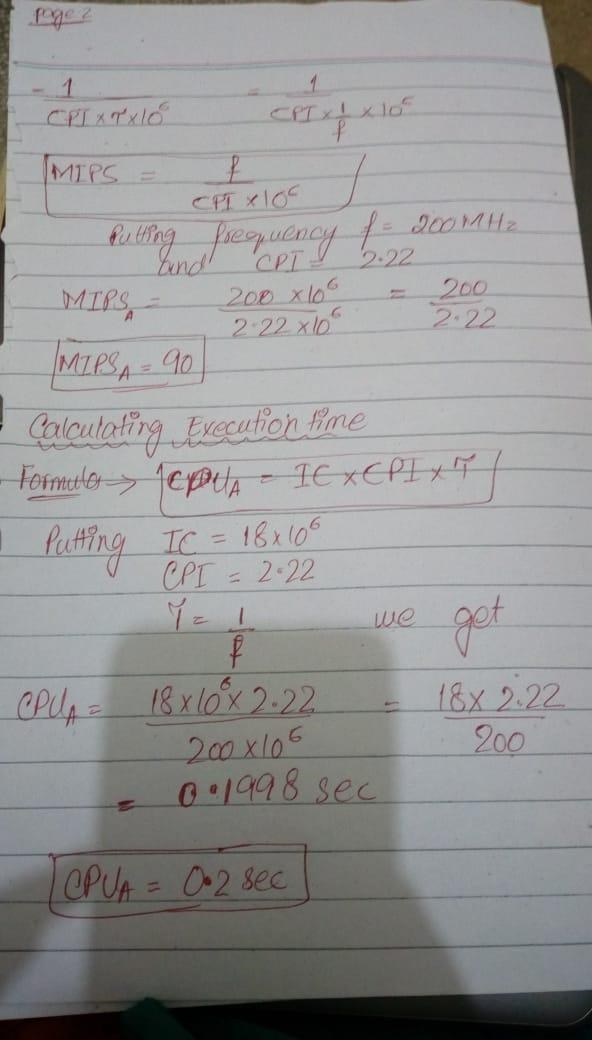 Page 2
= 1 / CPI × T × 10^6 = 1 / CPI × 1/f × 10^6
MIPS = f / CPI × 10^6
Putting frequency f = 200 MHz
and CPI = 2.22
MIPS_A = 200 × 10^6 / 2.22 × 10^6 = 200 / 2.22
MIPS_A = 90
Calculating Execution time
Formula → CPU_A = IC × CPI × T
Putting IC = 18×10^6
CPI = 2.22
T = 1/f we get
CPU_A = 18×10^6 × 2.22 / 200×10^6 = 18 × 2.22 / 200
= 0.1998 sec
CPU_A = 0.2 sec